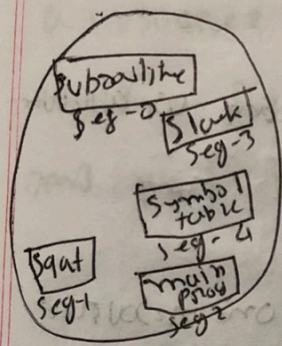 Subroutine
seg-0
Stack
seg-3
Symbol
table
seg-4
Sqrt
seg-1
main
prog
seg2